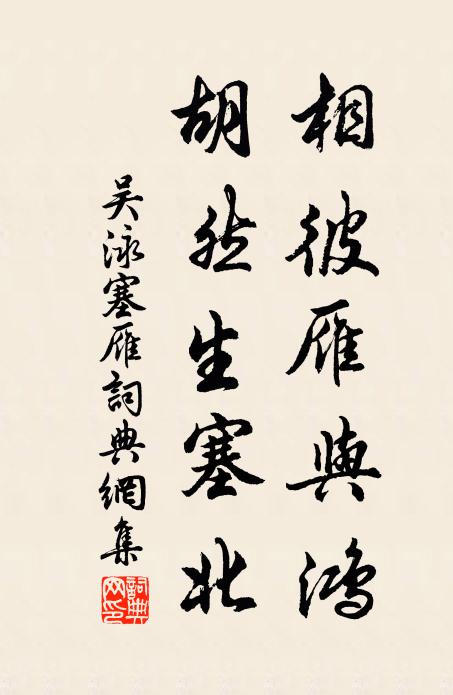 相彼雁與鴻
胡然生塞北
吴泳塞雁詞典網集
詞典网印